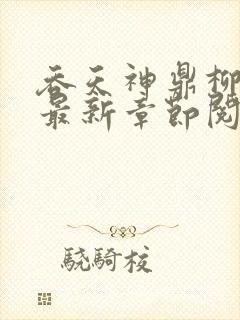 吞天神鼎柳
最新章节阅
驍騎校